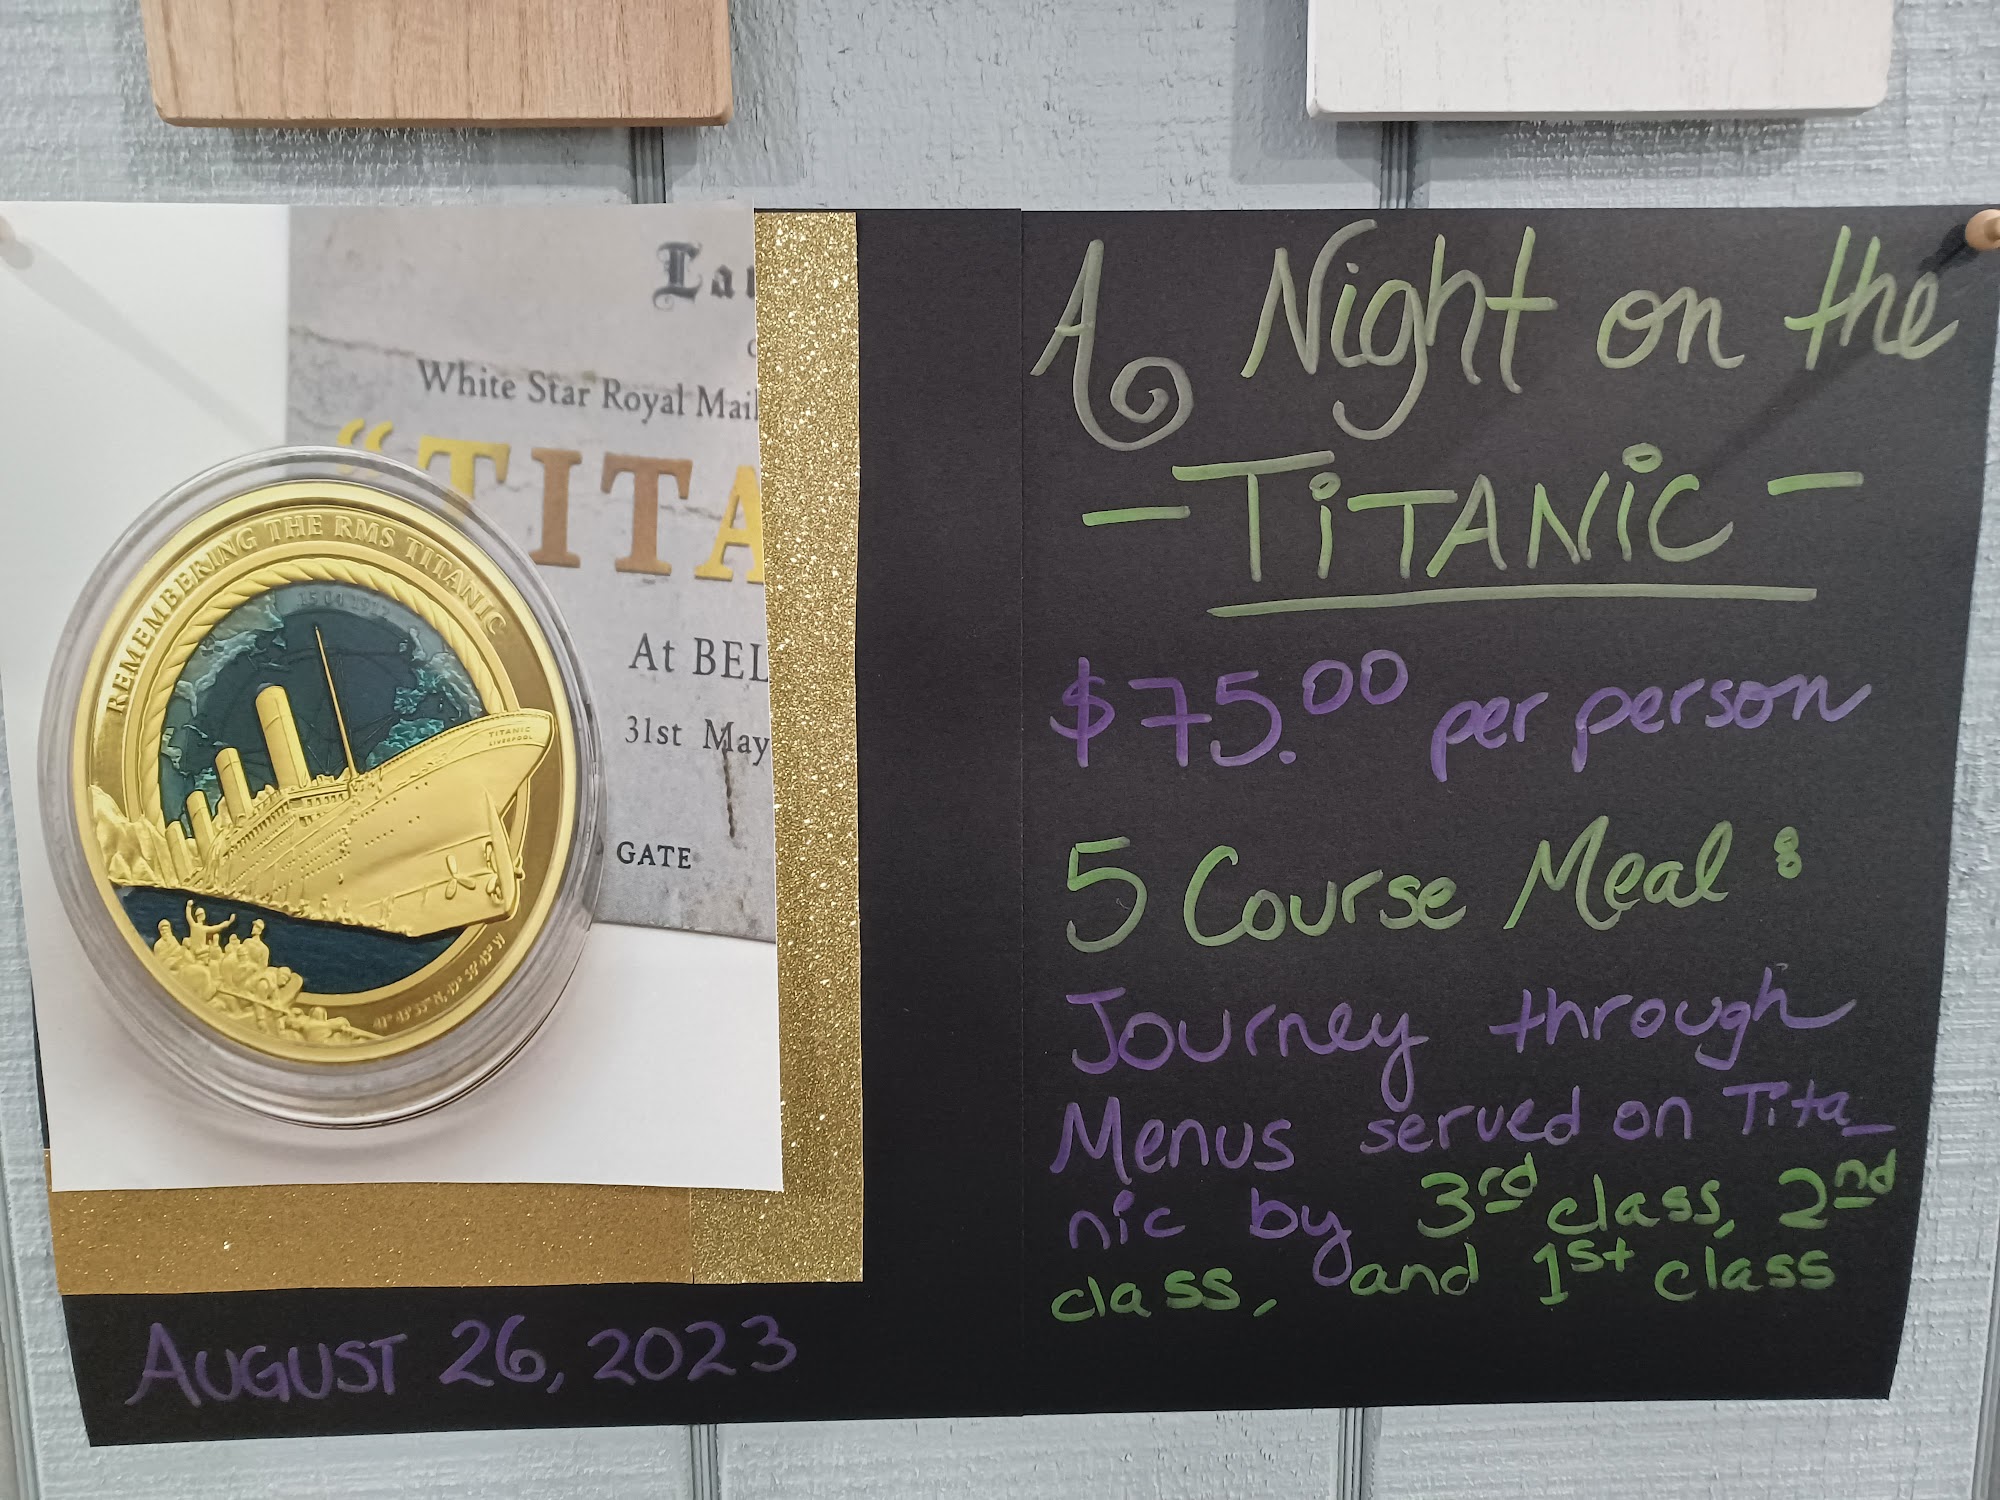 Lau
White Star Royal Mail
"TITA
At BEL
31st May
GATE
REMEMBERING THE RMS TITANIC
15 04 1912
TITANIC
LIVERPOOL
AUGUST 26, 2023
A Night on the
- TiTANiC -
$75.00 per person
5 Course Meal:
Journey through
Menus served on Tita-
nic by 3rd class, 2nd
class, and 1st class